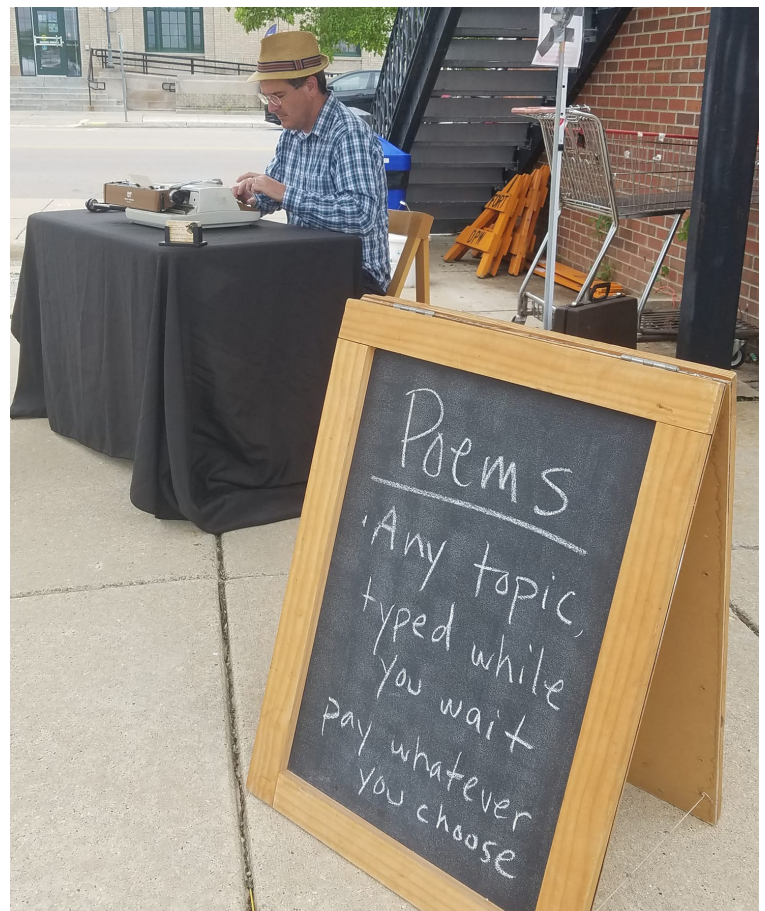 Poems
Any topic,
typed while
you wait
pay whatever
you choose